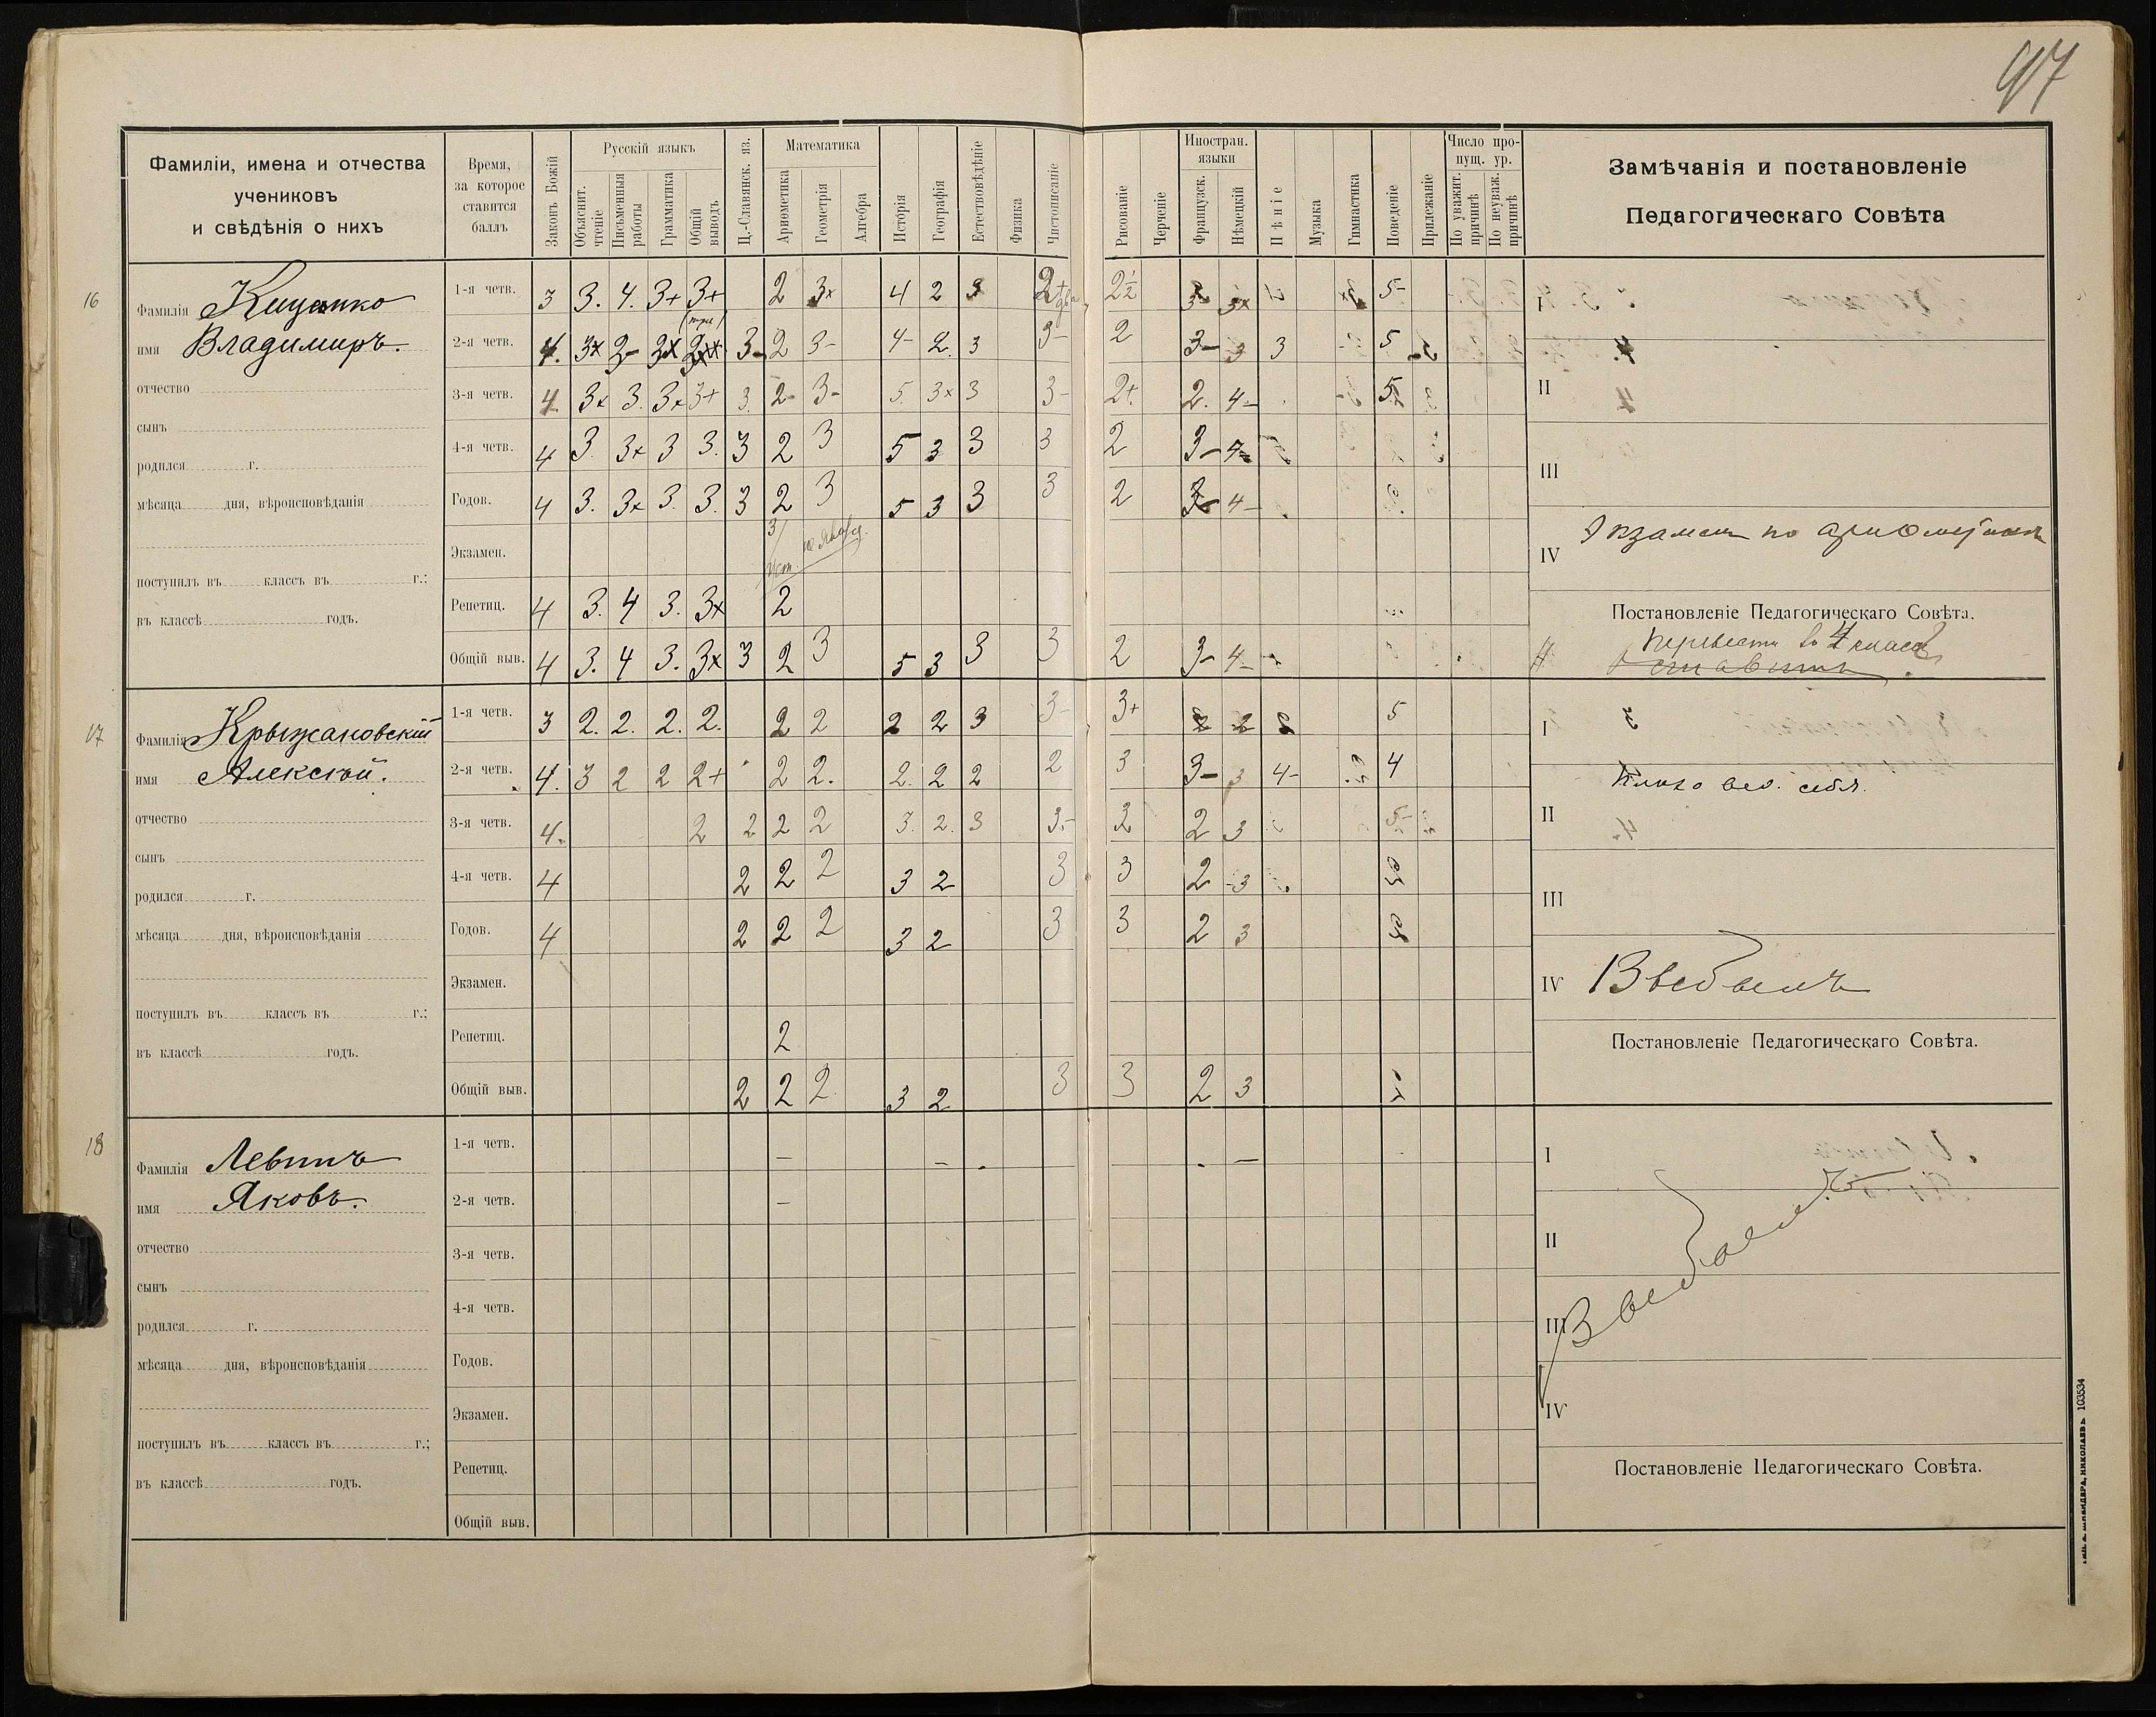 97
Фамиліи, имена и отчества
учениковъ
и свѣдѣнія о нихъ
Время,
за которое
ставится
баллъ
Законъ Божій
Русскій языкъ
Объяснит. чтеніе
Письменныя работы
Грамматика
Общій выводъ
Ц.-Славянск. яз.
Математика
Ариѳметика
Геометрія
Алгебра
Исторія
Географія
Естествовѣдѣніе
Физика
Чистописаніе
Рисованіе
Черченіе
Иностран. языки
Французск.
Нѣмецкій
Пѣніе
Музыка
Гимнастика
Поведеніе
Прилежаніе
Число пропущ. ур.
По уважит. причинѣ
По неуваж. причинѣ
Замѣчанія и постановленіе
Педагогическаго Совѣта
16
Фамилія
имя Владимиръ.
отчество
сынъ
родился г.
мѣсяца дня, вѣроисповѣданія
поступилъ въ классъ въ г.;
въ классѣ годъ.
1-я четв. 3 3. 4. 3+ 3+ 2 3х 4 2 3 2+ 2½ 5-
2-я четв. 4. 3х 2- 3х 3- 2 3- 4- 2. 3 3- 2 3- 3 3 5
3-я четв. 4. 3х 3. 3х 3+ 3. 2- 3- 5. 3х 3 3- 2+. 2. 4- 5
4-я четв. 4 3. 3х 3 3. 3 2 3 5 3 3 3 2 3-
Годов. 4 3. 3х 3. 3. 3 2 3 5 3 3 3 2 4-
Экзамен. 3
Репетиц. 4 3. 4 3. 3х 2
Общій выв. 4 3. 4 3. 3х 3 2 3 5 3 3 3 2 3- 4-
I
II
III
IV Экзаменъ по ариѳметикѣ
Постановленіе Педагогическаго Совѣта.
Перевести въ 4 классъ
оставить
17
Фамилія Крыжановскій
имя Алексѣй.
отчество
сынъ
родился г.
мѣсяца дня, вѣроисповѣданія
поступилъ въ классъ въ г.;
въ классѣ годъ.
1-я четв. 3 2. 2. 2. 2. 2 2 2 2 3 3- 3+ 2 5
2-я четв. 4. 3 2 2 2+ 2 2. 2. 2 2 2 3 3- 3 4- 4
3-я четв. 4. 2 2 2 2 3. 2. 3 3- 2 3 5-
4-я четв. 4 2 2 2 3 2 3 3 2 3
Годов. 4 2 2 2 3 2 3 3 2 3
Экзамен.
Репетиц. 2
Общій выв. 2 2 2 3 2 3 3 2 3
I
II Плохо вел. себя.
III
IV Выбылъ
Постановленіе Педагогическаго Совѣта.
18
Фамилія Левинъ
имя Яковъ.
отчество
сынъ
родился г.
мѣсяца дня, вѣроисповѣданія
поступилъ въ классъ въ г.;
въ классѣ годъ.
1-я четв. — — —
2-я четв. —
3-я четв.
4-я четв.
Годов.
Экзамен.
Репетиц.
Общій выв.
I
II
III
IV
Выбылъ
Постановленіе Педагогическаго Совѣта.
103534